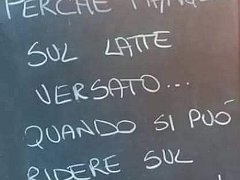 PERCHÉ
SUL LATTE
VERSATO...
QUANDO SI PUÒ
RIDERE SUL